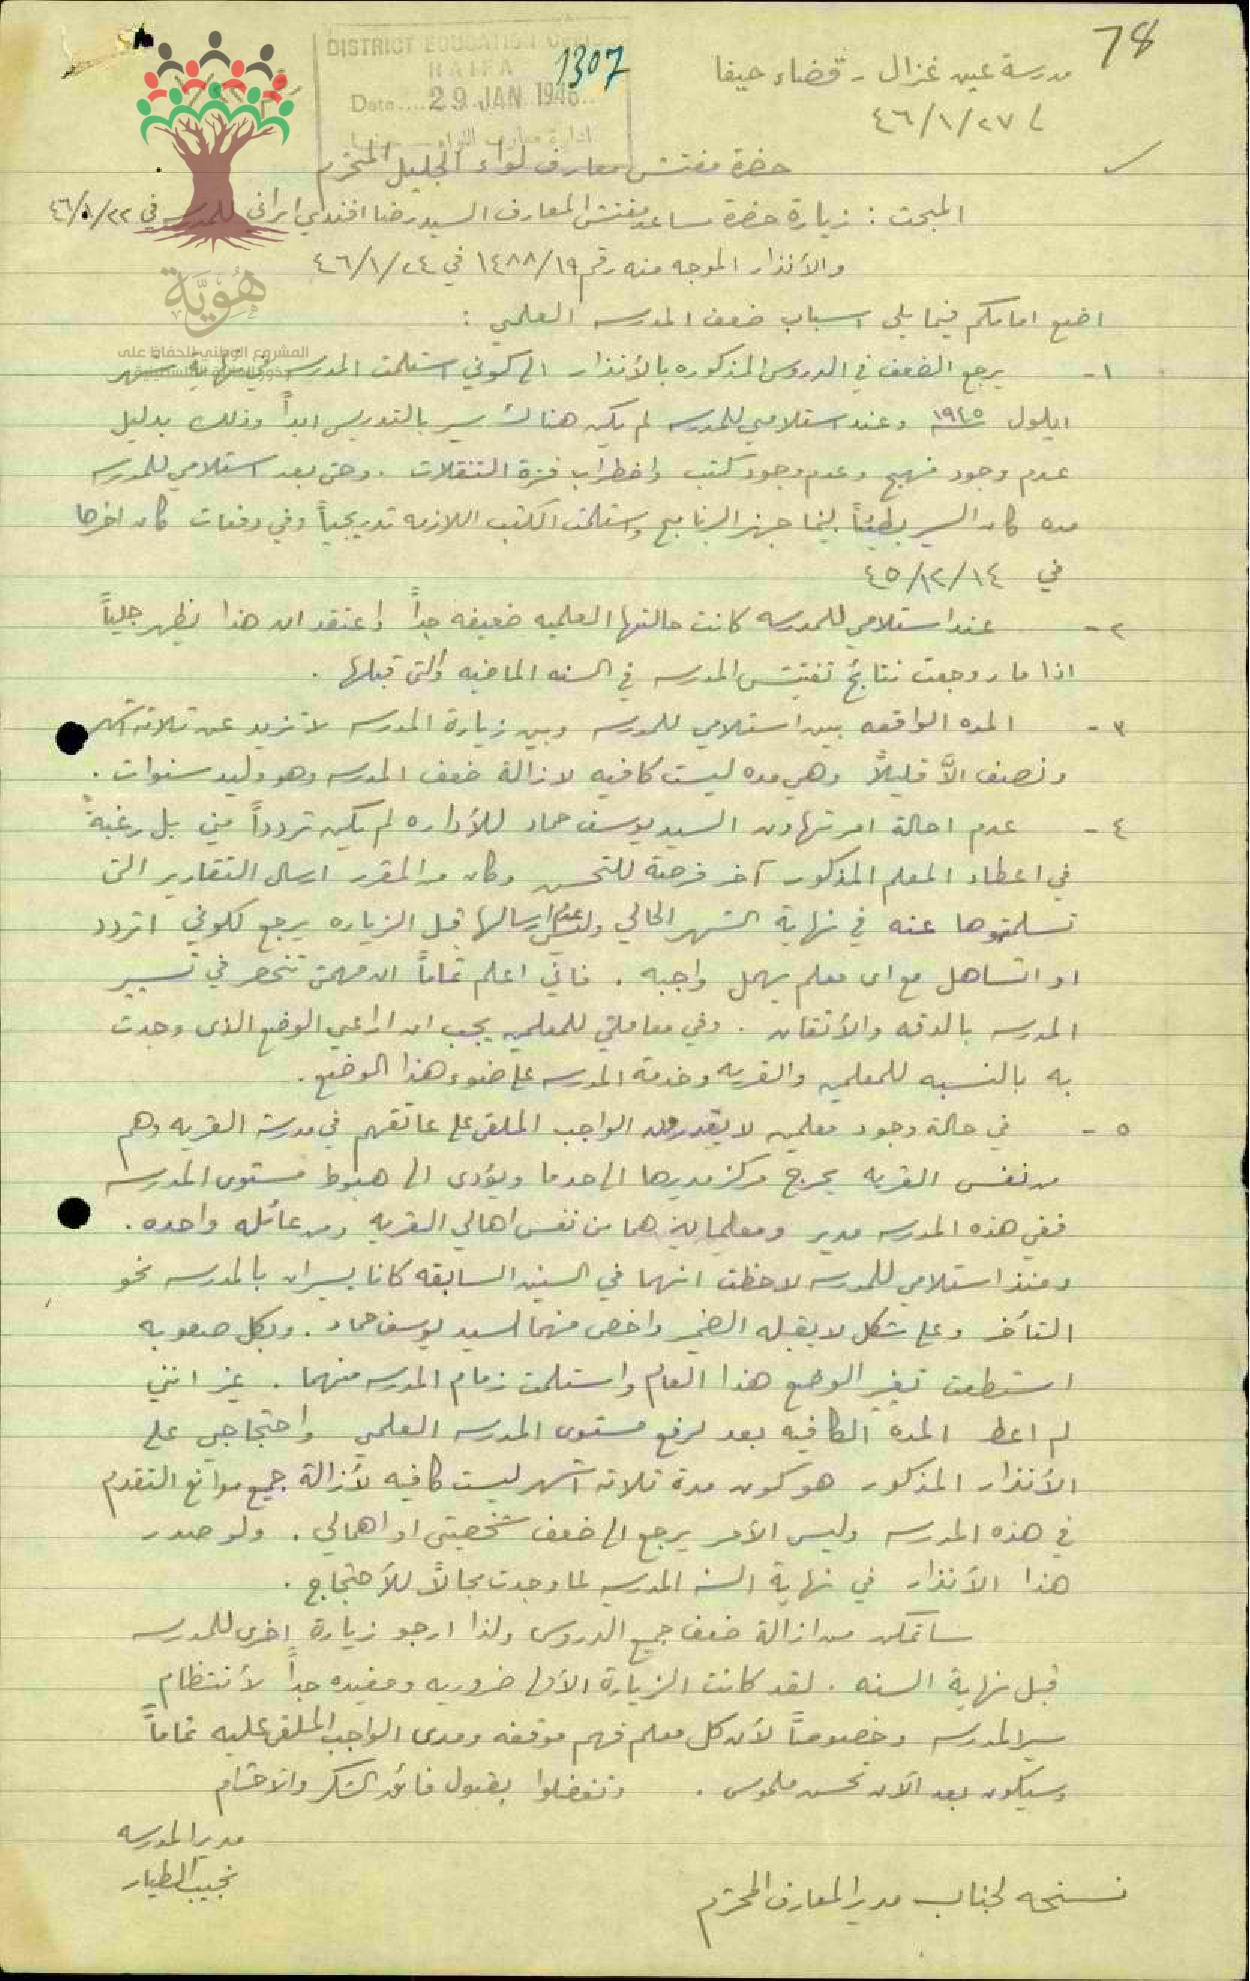 78
DISTRICT EDUCATION OFFICE
HAIFA
1307
Date.... 29 JAN 1946
ادارة معارف اللواء - حيفا
مدرسة عين غزال - قضاء حيفا
٤٦/١/٢٧
حضرة مفتش معارف لواء الجليل المحترم
المبحث : زيارة حضرة مساعد مفتش المعارف السيد رضا افندي ايراني للمدرسه في ٤٦/١/٢٢
والأنذار الموجه منه رقم ١٤٨٨/١٩ في ٤٦/١/٢٤
هُوِيَّة
المشروع الوطني للحفاظ على
جذور العائلة الفلسطينية
اضع امامكم فيما يلي اسباب ضعف المدرسه العلمي :
١- يرجع الضعف في الدروس المذكوره بالأنذار الى كوني استلمت المدرسه في نهاية شهر
ايلول ١٩٤٥ وعند استلامي للمدرسه لم يكن هناك سير بالتدريس ابداً وذلك بدليل
عدم وجود منهج وعدم وجود كتب واضطراب فترة التنقلات . وحتى بعد استلامي للمدرسه
مده كان السير بطيئاً بينما جهز البرنامج واستلمت الكتب اللازمه تدريجياً وفي دفعات كان اخرها
في ٤٥/١٢/١٤
٢- عند استلامي للمدرسه كانت حالتها العلميه ضعيفه جداً واعتقد ان هذا يظهر جلياً
اذا ما روجعت نتائج تفتيش المدرسه في السنه الماضيه والتي قبلها .
٣- المده الواقعه بين استلامي للمدرسه وبين زيارة المدرسه لا تزيد عن ثلاثة اشهر
ونصف الاَّ قليلاً وهي مده ليست كافيه لازالة ضعف المدرسه وهو وليد سنوات .
٤- عدم احالة امر تهاون السيد يوسف حماد للأداره لم يكن تردداً مني بل رغبةً
في اعطاء المعلم المذكور آخر فرصة للتحسن وكان من المقرر ارسال التقارير التي
تسلمتموها عنه في نهاية الشهر الحالي وليس ارسالها قبل الزياره يرجع لكوني اتردد
او اتساهل مع اي معلم يهمل واجبه . فاني اعلم تماماً ان مهمتي تنحصر في تسيير
المدرسه بالدقه والأتقان . وفي معاملتي للمعلمين يجب ان اراعي الوضع الذي وجدت
به بالنسبه للمعلمين والقريه وخدمة المدرسه على ضوء هذا الوضع .
٥- في حالة وجود معلمين لا يقدرون الواجب الملقى على عاتقهم في مدرسة القريه وهم
من نفس القريه يحرج مركز مديرها الى حد ما ويؤدي الى هبوط مستوى المدرسه
ففي هذه المدرسه مدير ومعلمان هما من نفس اهالي القريه ومن عائله واحده .
ومنذ استلامي للمدرسه لاحظت انهما في السنين السابقه كانا يسيران بالمدرسه نحو
التأخر وعلى شكل لا يقبله الضمير واخص منهما السيد يوسف حماد . وبكل صعوبه
استطعت تغيير الوضع هذا العام واستلمت زمام المدرسه منهما . غير انني
لم اعط المدة الكافيه بعد لرفع مستوى المدرسه العلمي واحتجاجي على
الأنذار المذكور هو كون مدة ثلاثة اشهر ليست كافيه لأزالة جميع موانع التقدم
في هذه المدرسه وليس الأمر يرجع الى ضعف شخصيتي او اهمالي . ولو صدر
هذا الأنذار في نهاية السنه المدرسيه لما وجدت مجالاً للأحتجاج .
ساتمكن من ازالة ضعف جميع الدروس ولذا ارجو زيارة اخرى للمدرسه
قبل نهاية السنه . لقد كانت الزيارة الأولى ضروريه ومفيده جداً لأنتظام
سير المدرسه وخصوصاً لأن كل معلم فهم موقفه ومدى الواجب الملقى عليه تماماً
وسيكون بعد الآن تحسن ملموس . وتفضلوا بقبول فائق الشكر والاحترام
مدير المدرسه
نجيب الطيار
نسخه لجناب مدير المعارف المحترم